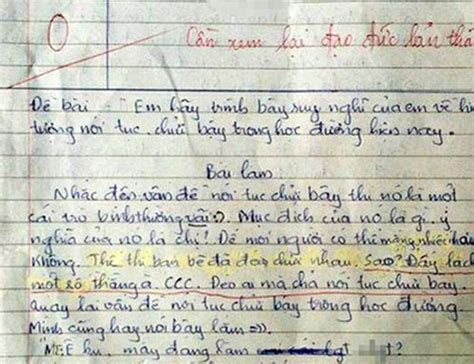 0
Cần xem lại đạo đức bản thâ
Đề bài: "Em hãy trình bày suy nghĩ của em về hi
tượng nói tục, chửi bậy trong học đường hiện nay.
Bài làm
Nhắc đến vấn đề nói tục chửi bậy thì nó là một
cái trò bình thường vãi :). Mục đích của nó là gì.. ý
nghĩa của nó là chi! Để mọi người có thể mắng nhiếc
Không. Thế thì bạn bè đã đéo chửi nhau. Sao? Đấy là
một số thằng ạ. CCC. Đéo ai mà chả nói tục chửi bậy.
quay lại vấn đề nói tục chửi bậy trong học đường.
Mình cũng hay nói bậy lắm =)).
ku, mày đang làm